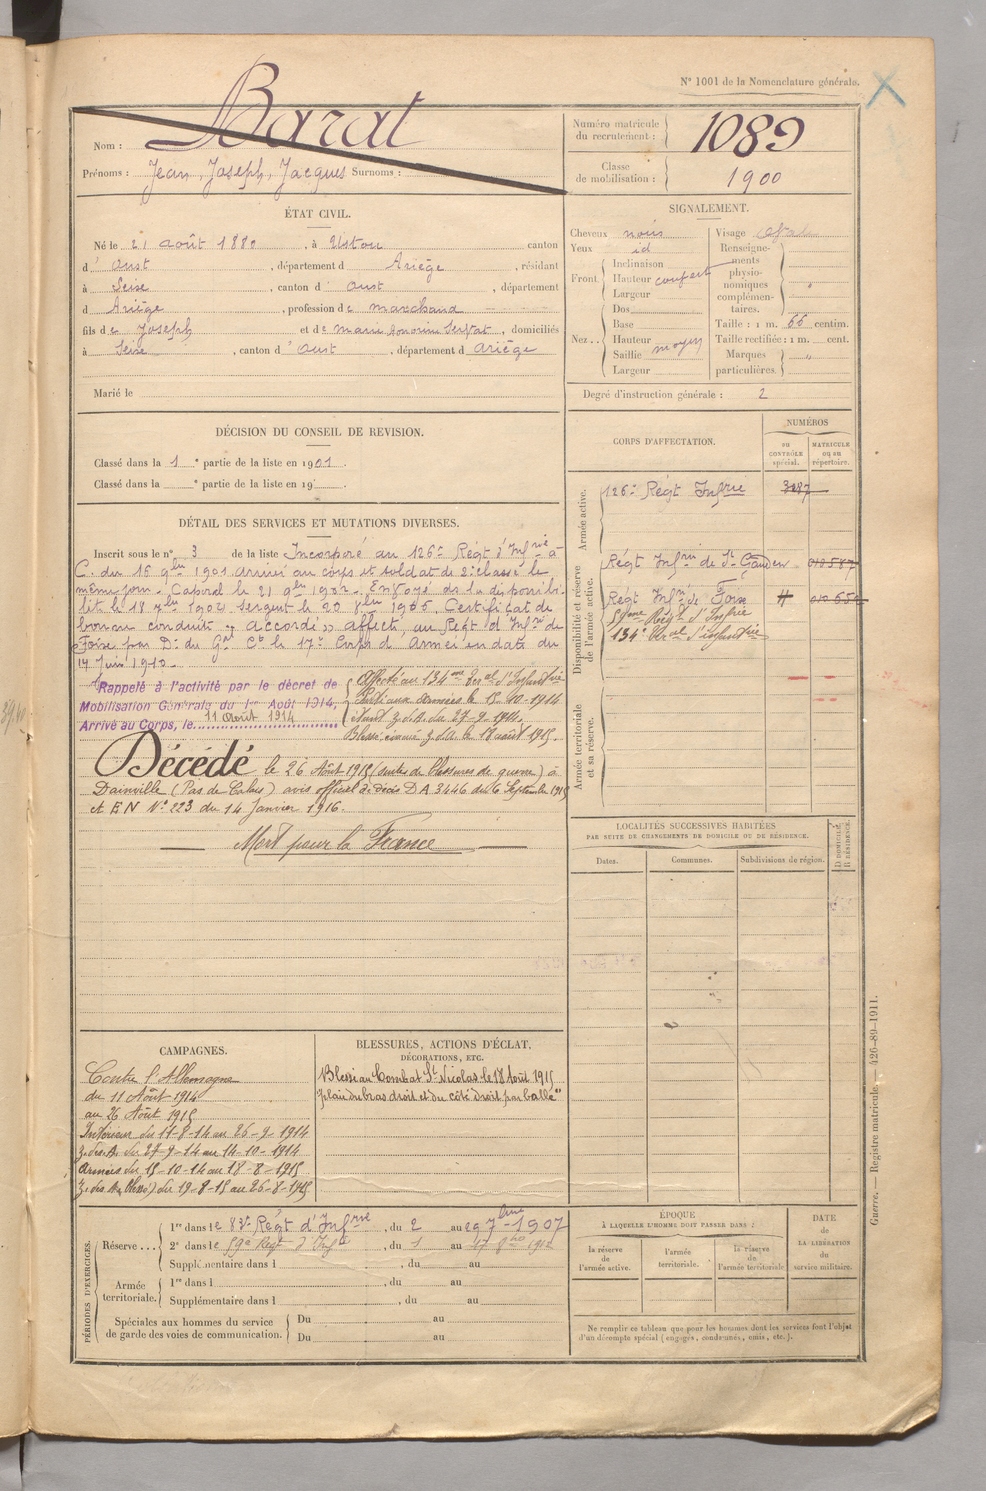 N° 1001 de la Nomenclature générale.
Nom : Barat
Prénoms : Jean, Joseph, Jacques Surnoms :
Numéro matricule du recrutement : 1089
Classe de mobilisation : 1900
ÉTAT CIVIL.
Né le 21 août 1880, à Ustou canton
d' Oust, département d Ariège, résidant
à Seix, canton d' Oust, département
d Ariège, profession de marchand
fils de Joseph et de marie honorine Servat, domiciliés
à Seix, canton d' Oust, département d Ariège
Marié le
SIGNALEMENT.
Cheveux noirs
Yeux id
Front Inclinaison
Hauteur couvert
Largeur
Dos
Nez.. Base
Hauteur
Saillie moyen
Largeur
Visage ovale
Renseignements physionomiques complémentaires.
Taille : 1 m. 66 centim.
Taille rectifiée : 1 m. cent.
Marques particulières. "
Degré d'instruction générale : 2
DÉCISION DU CONSEIL DE REVISION.
Classé dans la 1 e partie de la liste en 1901.
Classé dans la e partie de la liste en 19 .
CORPS D'AFFECTATION.
NUMÉROS
DU CONTRÔLE spécial.
MATRICULE OU AU répertoire.
Armée active.
126e Régt Infrie 3187
Disponibilité et réserve de l'armée active.
Régt Infrie de St Gaudens 010587
Régt Infrie de Foix
59eme Régt d'Infrie
134e Rral d'infanterie
Armée territoriale et sa réserve.
DÉTAIL DES SERVICES ET MUTATIONS DIVERSES.
Inscrit sous le n° 3 de la liste Incorporé au 126e Régt d'Infrie à
C. du 16 9bre 1901 arrivé au corps et soldat de 2e classe le
même jour. Caporal le 21 9bre 1902. Envoyé dans la disponibi-
lité le 18 7bre 1904 sergent le 20 8bre 1906. Certificat de
bonne conduite "accordé" affecté au Régt d'Infie de
Foix par Dn du Gal Ct le 17e Corps d'Armée en date du
14 Juin 1910.
Rappelé à l'activité par le décret de
Mobilisation Générale du 1er Août 1914,
Arrivé au Corps, le 11 Août 1914
Affecté au 134me d'Infanterie
Parti aux armées le 15-10-1914
z.d.A. du 27-9-1914.
Blessé évacué z.d.a. le 18 août 1915.
Décédé le 26 Août 1915 (suites de blessures de guerre) à
Dainville (Pas de Calais) avis officiel de décès D A 3446 du 6 Septembre 1915
et EN N° 223 du 14 Janvier 1916.
Mort pour la France
LOCALITÉS SUCCESSIVES HABITÉES
PAR SUITE DE CHANGEMENTS DE DOMICILE OU DE RÉSIDENCE.
Dates.
Communes.
Subdivisions de région.
D. DOMICILE. R. RÉSIDENCE.
CAMPAGNES.
Contre l'Allemagne
du 11 Août 1914
au 26 Août 1915
Intérieur du 11-8-14 au 26-9-1914
z. des A. du 27-9-14 au 14-10-1914
Armées du 15-10-14 au 18-8-1915
z. des A (Blessé) du 19-8-15 au 26-8-1915
BLESSURES, ACTIONS D'ÉCLAT,
DÉCORATIONS, ETC.
Blessé au Combat St Nicolas le 18 Août 1915
"plaie du bras droit et du côté droit par balle"
PÉRIODES D'EXERCICES.
Réserve... 1re dans le 83e Régt d'Infrie, du 2 au 29 7bre 1907
2e dans le 59e Régt d'Infie, du 1 au 17 1912
Supplémentaire dans l , du au
Armée territoriale. 1re dans l , du au
Supplémentaire dans l , du au
Spéciales aux hommes du service
de garde des voies de communication.
Du au
Du au
ÉPOQUE
À LAQUELLE L'HOMME DOIT PASSER DANS :
la réserve de l'armée active.
l'armée territoriale.
la réserve de l'armée territoriale
DATE de LA LIBÉRATION du service militaire.
Ne remplir ce tableau que pour les hommes dont les services font l'objet
d'un décompte spécial (engagés, condamnés, omis, etc.).
Guerre. — Registre matricule. — 426-89-1911.